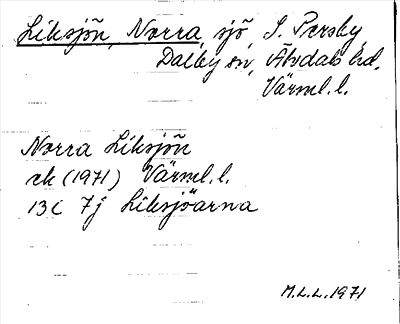 Liksjön, Norra, sjö, S. Persby,
Dalby sn, Älvdals hd.
Värml. l.
Norra Liksjön
ek (1971) Värml. l.
13C 7j Liksjöarna
M.L.L. 1971